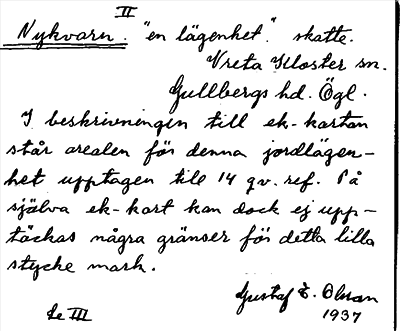 II
Nykvarn. "en lägenhet." skatte.
Vreta Kloster sn.
Gullbergs hd. Ögl.
I beskrivningen till ek-kartan
står arealen för denna jordlägen-
het upptagen till 14 qv. ref. På
själva ek-kart kan dock ej upp-
täckas några gränser för detta lilla
stycke mark.
Gustaf E. Olsson
Se III
1937